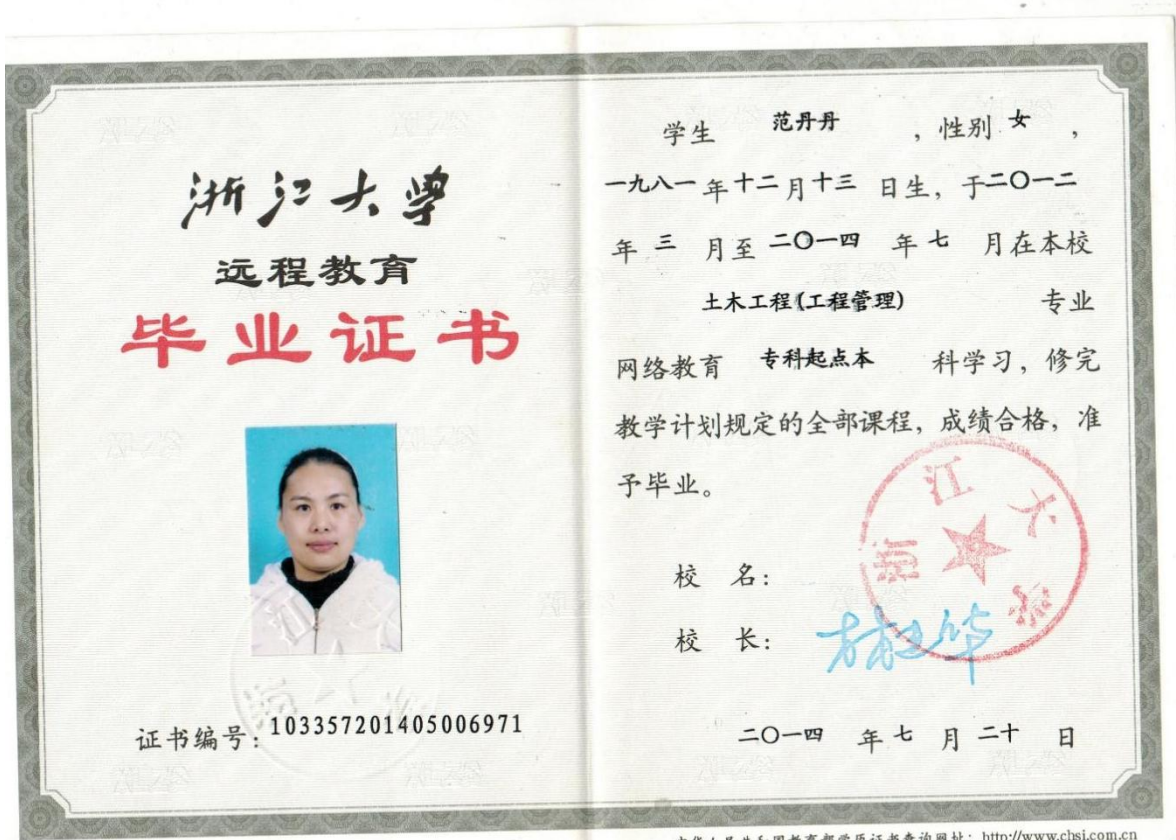 浙江大学
远程教育
毕业证书
证书编号：103357201405006971
学生 范丹丹 ，性别 女 ，
一九八一 年 十二 月 十三 日生，于 二〇一二
年 三 月至 二〇一四 年 七 月在本校
土木工程(工程管理) 专业
网络教育 专科起点本 科学习，修完
教学计划规定的全部课程，成绩合格，准
予毕业。
浙江大学
校 名：
校 长：
二〇一四 年 七 月 二十 日
中华人民共和国教育部学历证书查询网址：http://www.chsi.com.cn